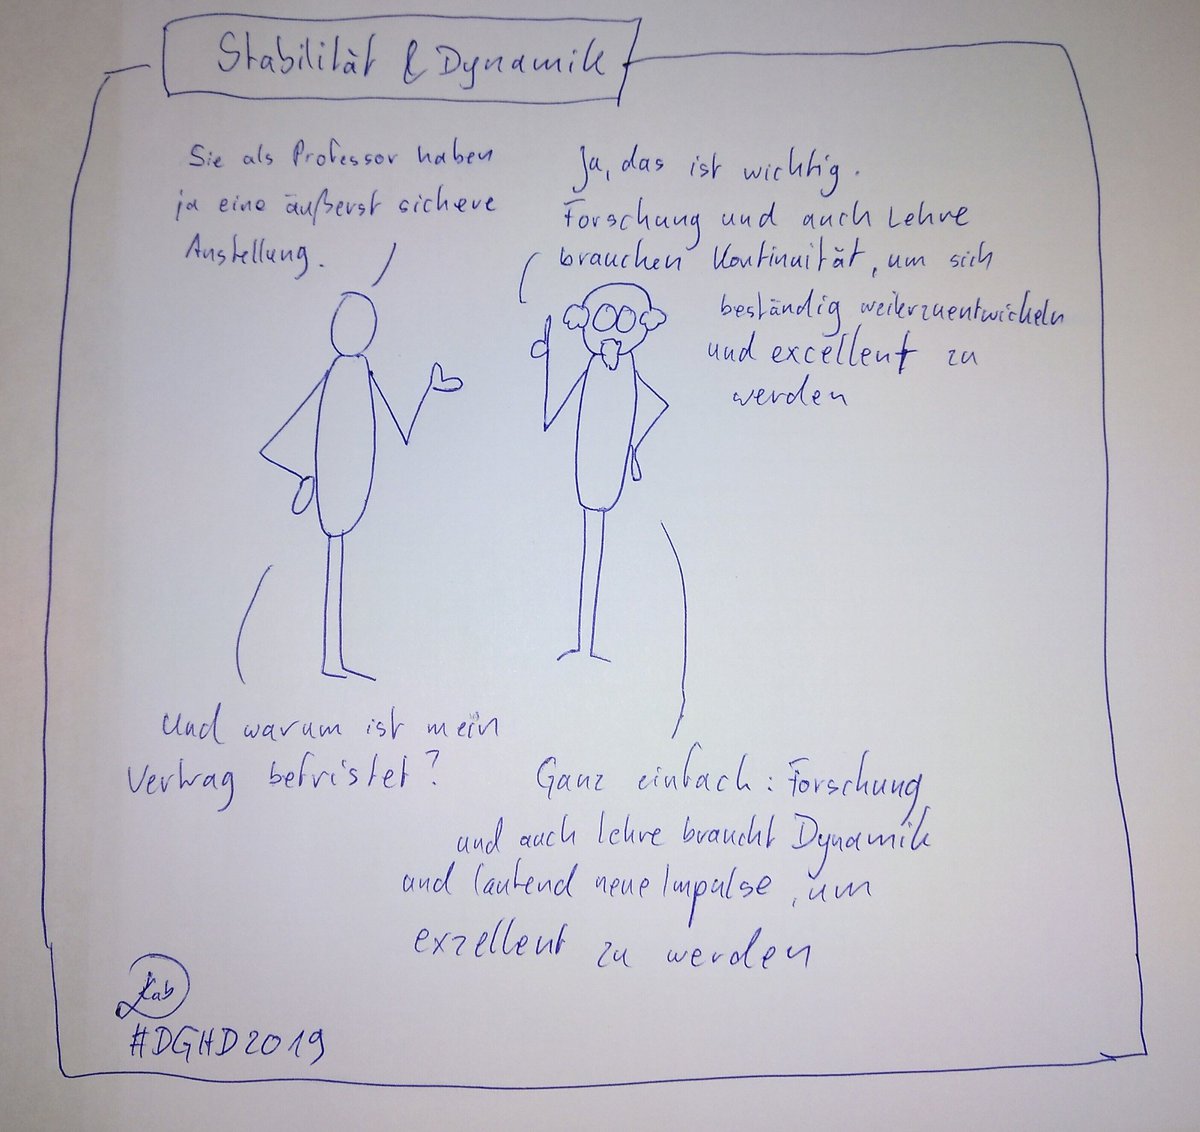 Stabilität & Dynamik
Sie als Professor haben
ja eine äußerst sichere
Anstellung.
Ja, das ist wichtig.
Forschung und auch Lehre
brauchen Kontinuität, um sich
beständig weiterzuentwickeln
und excellent zu
werden
Und warum ist mein
Vertrag befristet?
Ganz einfach: Forschung
und auch Lehre braucht Dynamik
und laufend neue Impulse, um
exzellent zu werden
Kab
#DGHD2019